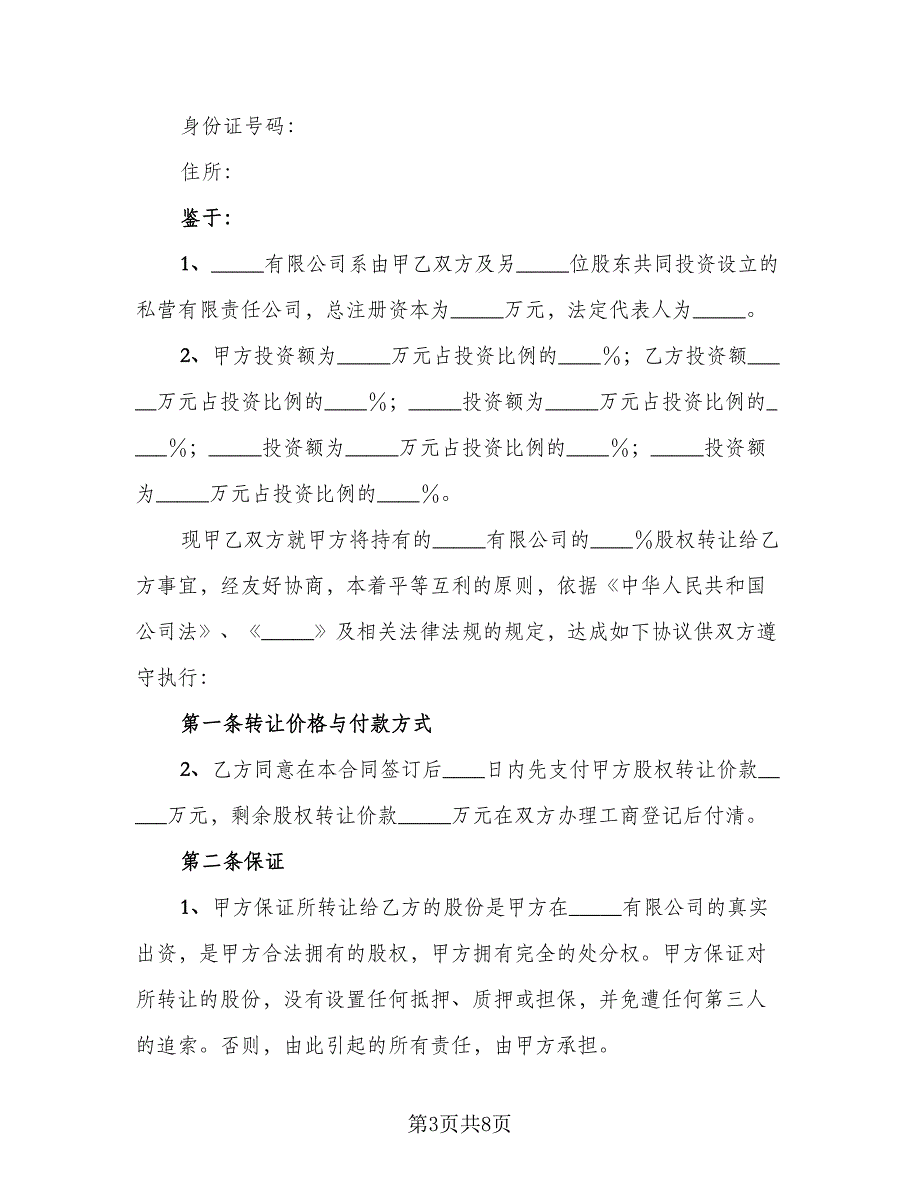 身份证号码：
住所：
鉴于：
1、_____有限公司系由甲乙双方及另_____位股东共同投资设立的
私营有限责任公司，总注册资本为_____万元，法定代表人为_____。
2、甲方投资额为_____万元占投资比例的____%；乙方投资额___
__万元占投资比例的____%；_____投资额为_____万元占投资比例的_
___%；_____投资额为_____万元占投资比例的____%；_____投资额
为_____万元占投资比例的____%。
现甲乙双方就甲方将持有的_____有限公司的____%股权转让给乙
方事宜，经友好协商，本着平等互利的原则，依据《中华人民共和国
公司法》、《_____》及相关法律法规的规定，达成如下协议供双方遵
守执行：
第一条转让价格与付款方式
2、乙方同意在本合同签订后____日内先支付甲方股权转让价款__
___万元，剩余股权转让价款_____万元在双方办理工商登记后付清。
第二条保证
1、甲方保证所转让给乙方的股份是甲方在_____有限公司的真实
出资，是甲方合法拥有的股权，甲方拥有完全的处分权。甲方保证对
所转让的股份，没有设置任何抵押、质押或担保，并免遭任何第三人
的追索。否则，由此引起的所有责任，由甲方承担。
第3页共8页